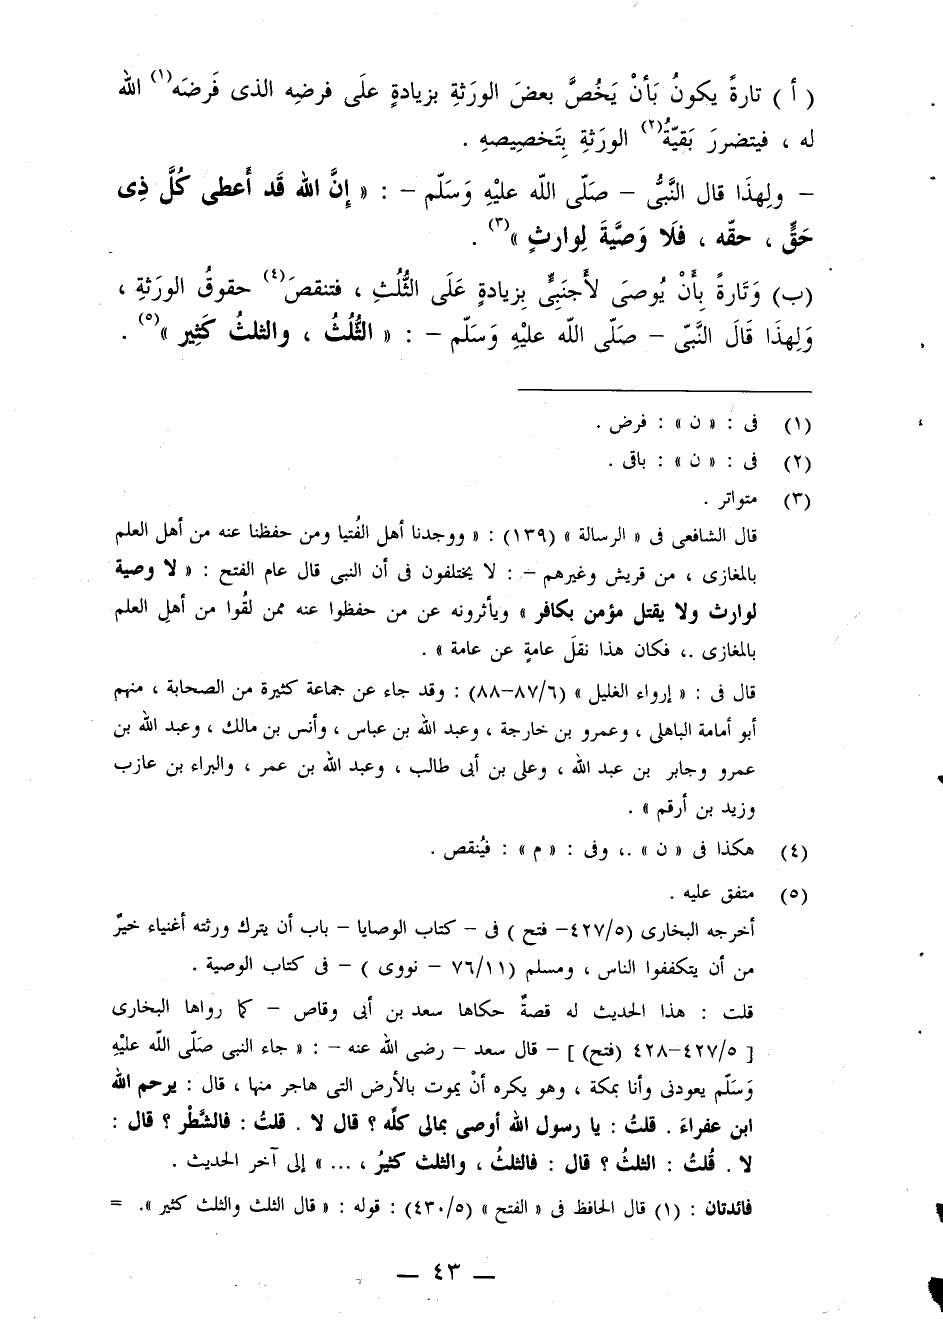 ( أ ) تارةً يكونُ بَأنْ يَخُصَّ بعضَ الورَثةِ بزيادةٍ علَى فرضِه الذى فَرضَه(١) الله
له ، فيتضررَ بَقيّةُ(٢) الورَثةِ بِتَخصيصهِ .
– ولِهذَا قال النَّبىُّ – صَلّى اللّه عليْهِ وَسَلّم – : « إنَّ الله قَد أَعطى كُلَّ ذِى
حَقٍّ ، حقّه ، فلَا وَصيَّةَ لِوارثٍ »(٣) .
(ب) وَتَارةً بِأَنْ يُوصَى لأَجنَبِىٍّ بِزيادةٍ عَلَى الثُّلُثِ ، فتنقصَ(٤) حقوقُ الورَثةِ ،
وَلِهذا قَالَ النَّبىّ – صَلّى اللّه عليْهِ وَسَلّم – : « الثُّلُثُ ، والثلثُ كَثِير »(٥) .
(١) فى : « ن » : فرض .
(٢) فى : « ن » : باقى .
(٣) متواتر .
قال الشافعى فى « الرسالة » (١٣٩) : « ووجدنا أهل الفُتيا ومن حفظنا عنه من أهل العلم
بالمغازى ، من قريش وغيرهم – : لا يختلفون فى أن النبى قال عام الفتح : « لا وصية
لوارث ولا يقتل مؤمن بكافر » ويأثرونه عن من حفظوا عنه ممن لقُوا من أهلِ العلم
بالمغازى .، فكان هذا نقلَ عامةٍ عن عامة » .
قال فى : « إرواء الغليل » (٨٧/٦–٨٨) : وقد جاء عن جماعة كثيرة من الصحابة ، منهم
أبو أمامة الباهلى ، وعمرو بن خارجة ، وعبد الله بن عباس ، وأنس بن مالك ، وعبد الله بن
عمرو وجابر بن عبد الله ، وعلى بن أبى طالب ، وعبد الله بن عمر ، والبراء بن عازب
وزيد بن أرقم » .
(٤) هكذا فى « ن » .، وفى : « م » : فيُنقص .
(٥) متفق عليه .
أخرجه البخارى (٤٢٧/٥– فتح ) فى – كتاب الوصايا – باب أن يترك ورثته أغنياء خيرٌ
من أن يتكففوا الناس ، ومسلم (٧٦/١١ – نووى ) – فى كتاب الوصية .
قلت : هذا الحديث له قصةٌ حكاها سعد بن أبى وقاص – كما رواها البخارى
[ ٤٢٧/٥–٤٢٨ (فتح) ] – قال سعد – رضى الله عنه – : « جاء النبى صَلّى اللّه عليْهِ
وَسَلّم يعودنى وأنا بمكة ، وهو يكره أنْ يموت بالأرض التى هاجر منها ، قال : يرحم الله
ابن عفراءَ . قلتُ : يا رسول الله أوصى بمالى كلِّه ؟ قال لا . قلتُ : فالشَّطْر ؟ قال :
لا . قُلتُ : الثلثُ ؟ قال : فالثلثُ ، والثلث كثيرُ ، ... » إلى آخر الحديث .
فائدتان : (١) قال الحافظ فى « الفتح » (٤٣٠/٥) : قوله : « قال الثلث والثلث كثير ». =
— ٤٣ —